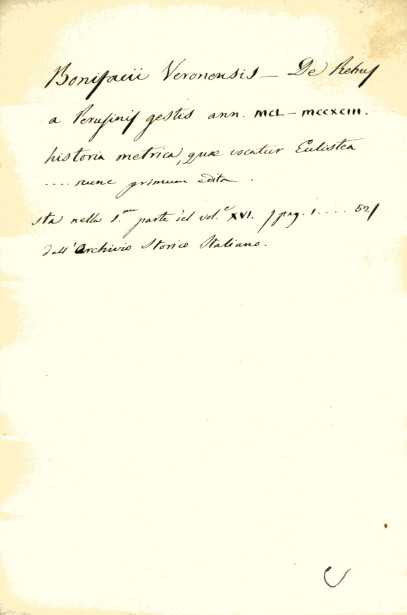 Bonifacii Veronensis — De Rebus
a Perusinis gestis ann. MCL – MCCXCIII.
historia metrica, quæ vocatur Eulistea
.... nunc primum edita.
sta nella 1.ma parte del vol.e XVI. (pag. 1.... 52)
dall'Archivio Storico Italiano.